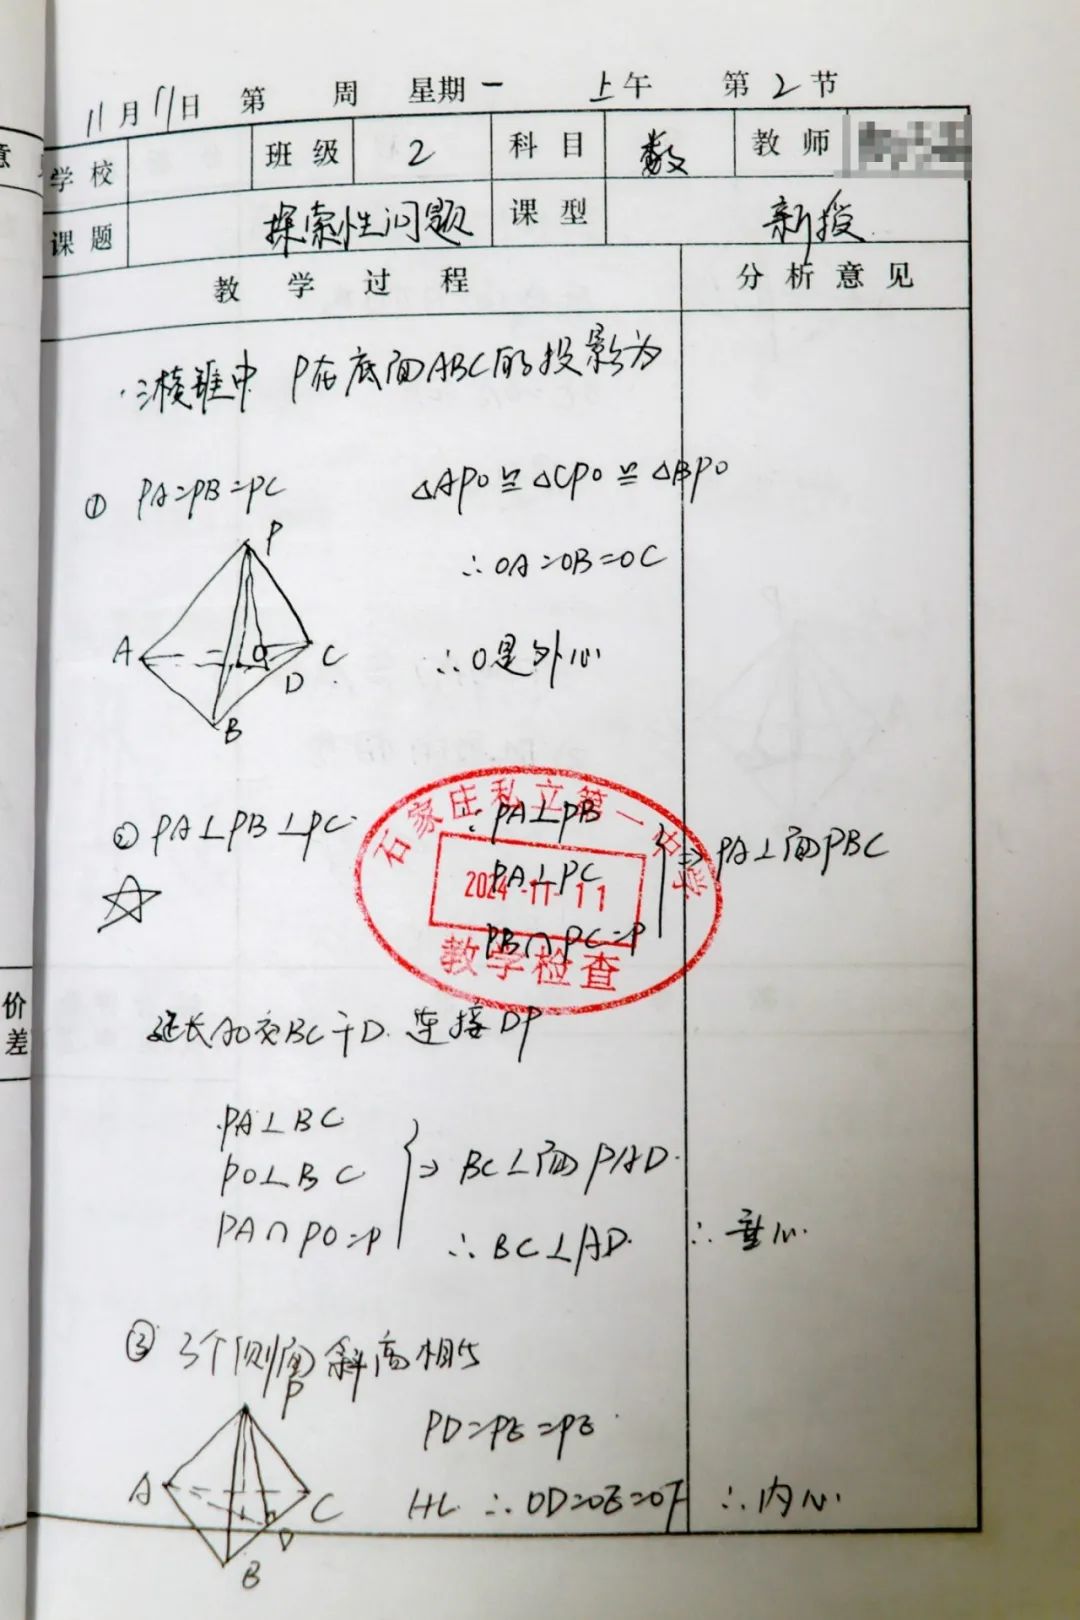 11月11日 第 周 星期一 上午 第2节
学校 班级 2 科目 数 教师
课题 探索性问题 课型 新授
教学过程 分析意见
三棱锥中 P在底面ABC的投影为
① PA=PB=PC △APO≌△CPO≌△BPO
∴OA=OB=OC
P
A O C
D
B
∴O是外心
② PA⊥PB⊥PC ∵PA⊥PB
PA⊥PC ⇒PA⊥面PBC
PB∩PC=P
石家庄私立第一中学
2024-11-11
教学检查
延长AO交BC于D.连接DP
PA⊥BC
PO⊥BC ⇒ BC⊥面PAD.
PA∩PO=P ∴BC⊥AD. ∴垂心.
③ 3个侧面斜高相等
P
PD=PE=PE
A C
D
B
HL ∴OD=OE=OF ∴内心.
价
差
意